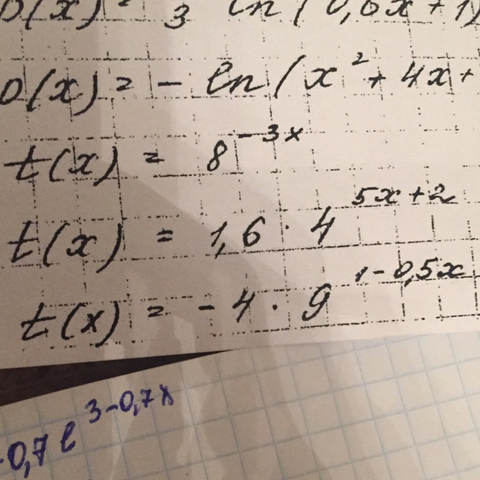 (x) = 3 ln(0,6x+1)
D(x) = - ln(x² + 4x +
t(x) = 8^-3x
t(x) = 1,6 · 4^5x+2
t(x) = - 4 · 9^1-0,5x
-0,7 e^3-0,7x